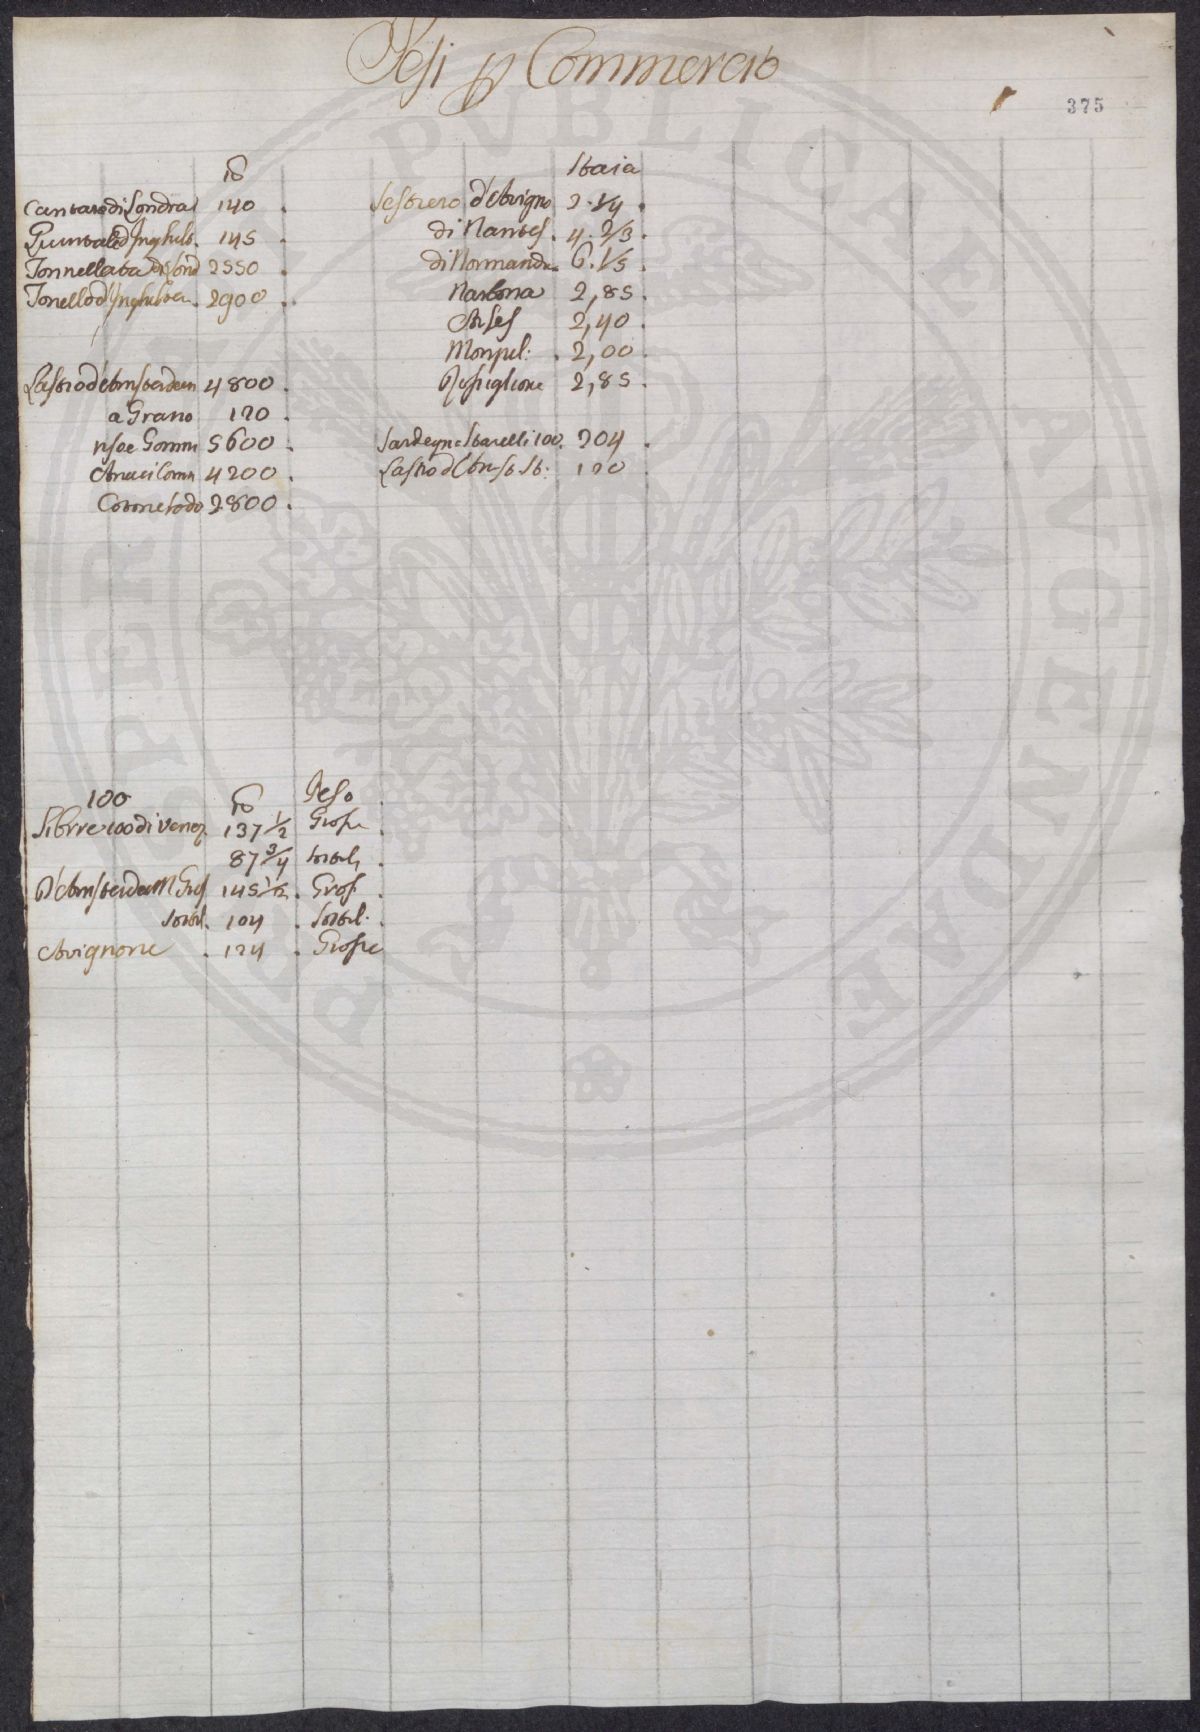 Pesi p Commercio
375
lb
Cantaro di Londra 140
Quintale d'Inghilt. 145
Tonnellata di Lond 2550
Tonello d'Inghilterr. 2900
Lastro d'Amsterdam 4800
a Grano 120
5600
4200
2800
Staia
Sestiero d'Avigno 2.1/4
di Nantes 4.2/3
di Normandia 6.1/5
Narbona 2,85
Arles 2,40
Monpel: 2,00
2,85
Sardegna Starelli 100. 204
Lastro d'Amst. St: 120
100
lb Peso
Libbre 100 di Venez. 137 1/2 Grosse
87 3/4 sottili
D'Amsterdam Gros 145 1/2 Gros
Sottil. 104 Sottil.
Avignone 124 Grosse
PVBLICAE
AVGENDAE
PROSPERITATI